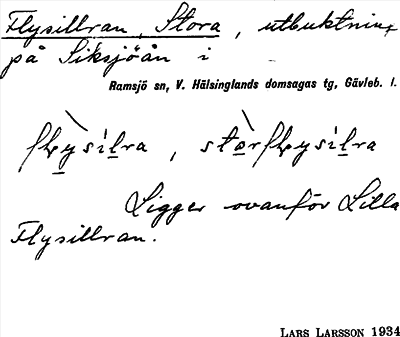 Flysillran, Stora, utbuktning
på Siksjöån i
Ramsjö sn, V. Hälsinglands domsagas tg, Gävleb. l.
flỳsilra, stòrflysilra
Ligger ovanför Lilla
Flysillran.
LARS LARSSON 1934